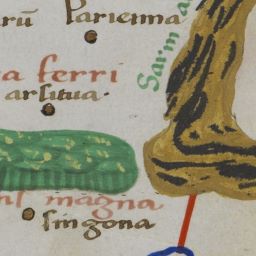 rũ Parienna
Sarm a
a ferri
arsitua
ns magna
singona